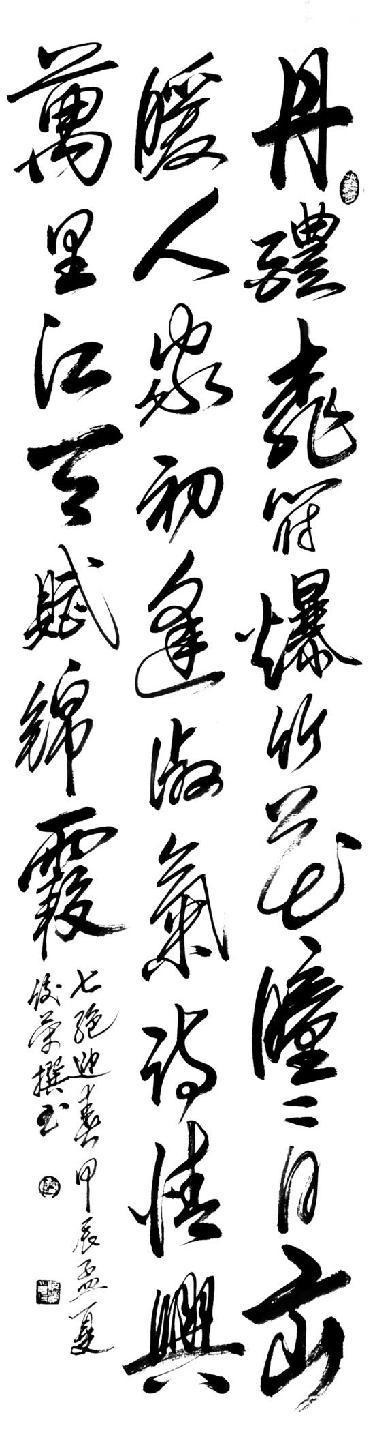 丹醴桃符爆竹花曈々日
暖人家初逢淑氣詩情興
萬里江天賦錦霞
七絕迎春甲辰孟夏
俊榮撰書